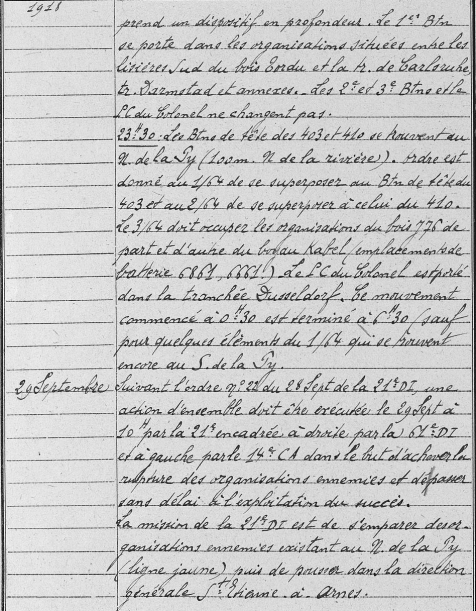 1918
prend un dispositif en profondeur. Le 1er Btn
se porte dans les organisations situées entre les
lisières Sud du bois Tordu et la tr. de Carlsruhe,
tr. Darmstad et annexes. Les 2e et 3e Btns et le
PC du Colonel ne changent pas.
23H30: Les Btns de tête des 403 et 410 se trouvent au
N. de la Py (100m. N de la rivière). Ordre est
donné au 1/64 de se superposer au Btn de tête du
403 et au 2/64 de se superposer à celui du 410.
Le 3/64 doit occuper les organisations du bois 776 de
part et d'autre du boyau Kabel (emplacements de
batterie 6861, 6661.) Le PC du Colonel est porté
dans la tranchée Dusseldorf. Ce mouvement
commencé à 0H30 est terminé à 6H30 (sauf
pour quelques éléments du 1/64 qui se trouvent
encore au S. de la Py.
29 Septembre Suivant l'ordre no 22 du 28 Sept de la 21e DI, une
action d'ensemble doit être exécutée le 29 Sept à
10H par la 21e encadrée à droite par la 61e DI
et à gauche par le 14e CA dans le but d'achever la
rupture des organisations ennemies et de passer
sans délai à l'exploitation du succès.
La mission de la 21e DI est de s'emparer des or-
ganisations ennemies existant au N. de la Py
(ligne jaune) puis de pousser dans la direction
générale St Etienne à Arnes.